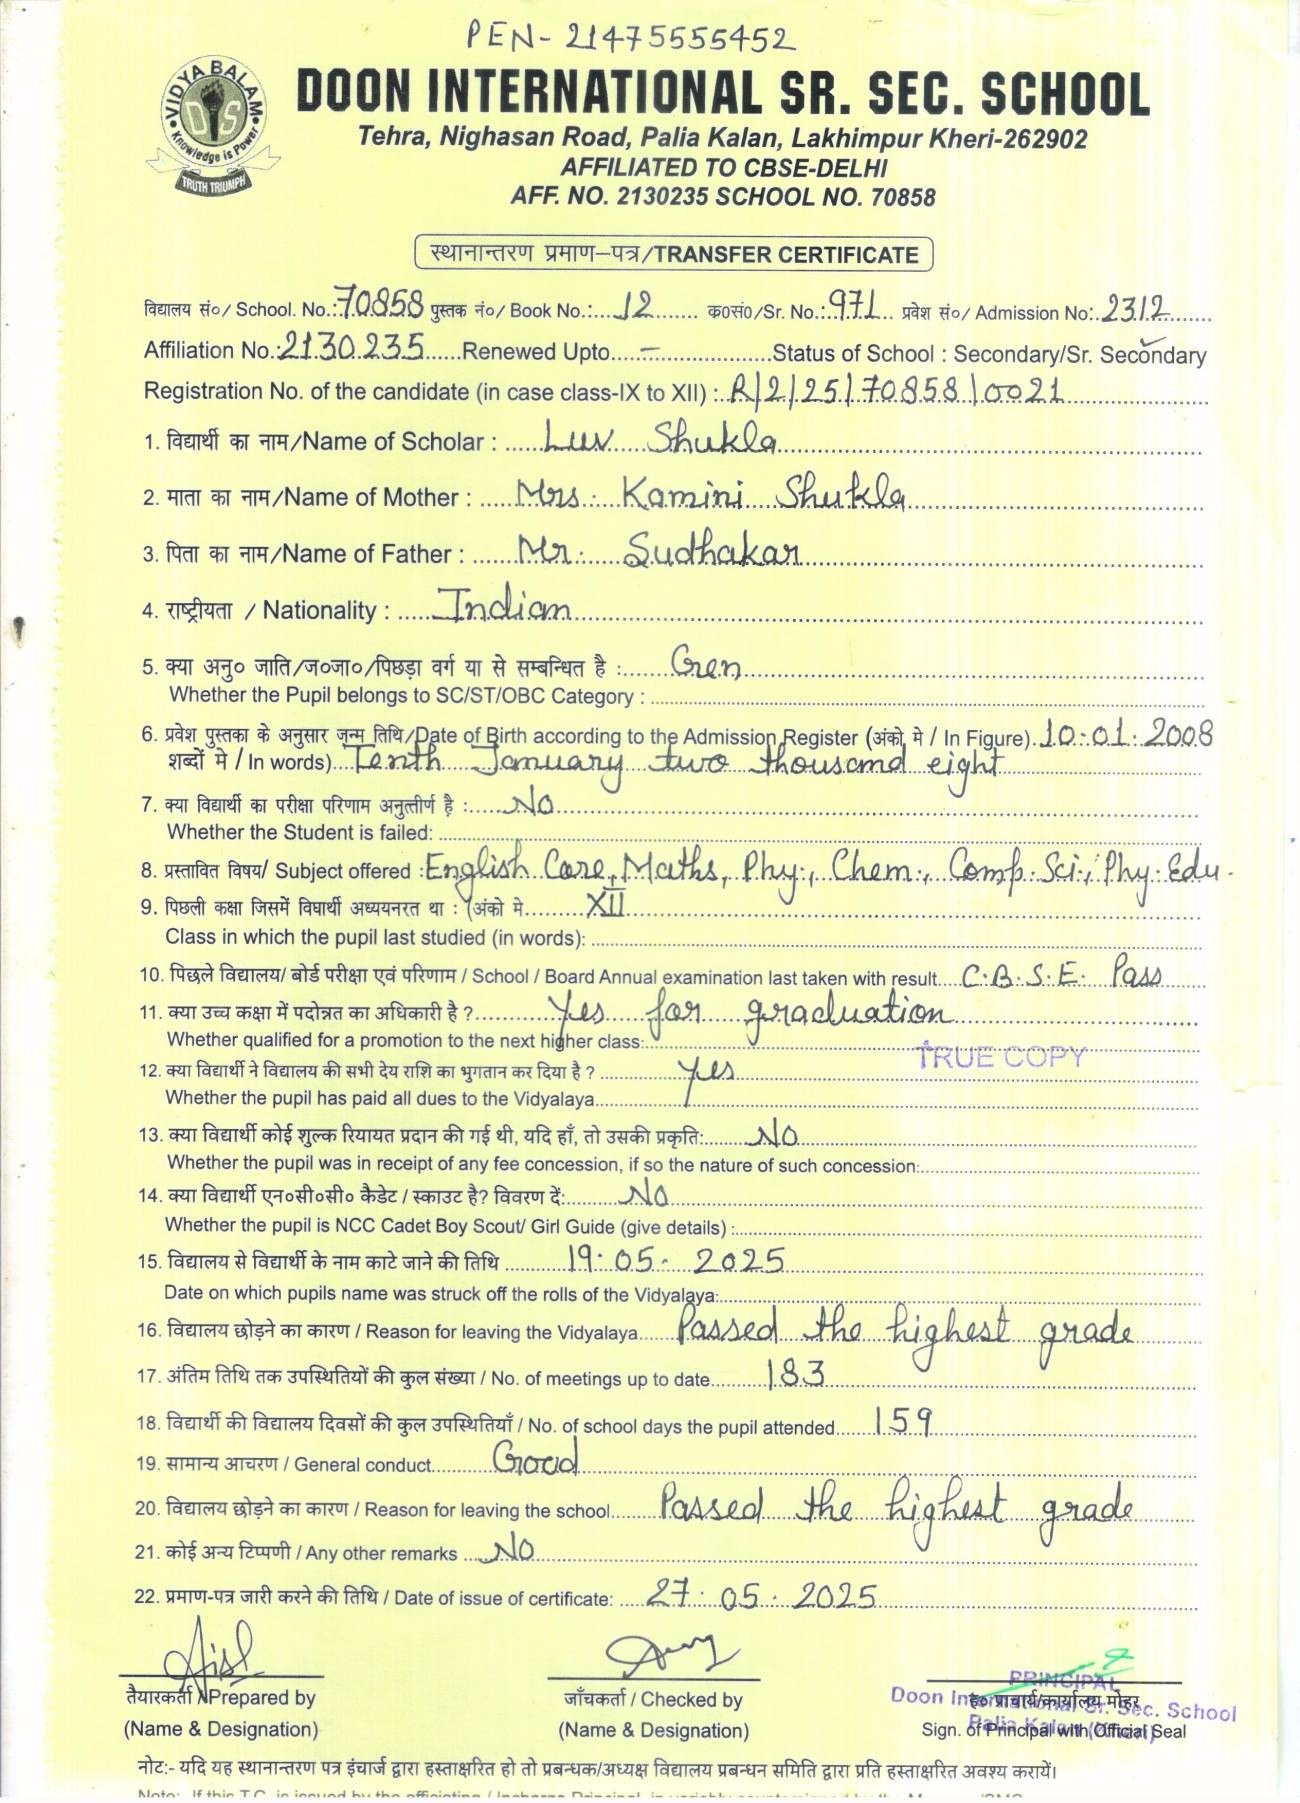 PEN- 21475555452
VIDYA BALAM
DIS
Knowledge is Power
TRUTH TRIUMPH
DOON INTERNATIONAL SR. SEC. SCHOOL
Tehra, Nighasan Road, Palia Kalan, Lakhimpur Kheri-262902
AFFILIATED TO CBSE-DELHI
AFF. NO. 2130235 SCHOOL NO. 70858
स्थानान्तरण प्रमाण–पत्र/TRANSFER CERTIFICATE
विद्यालय सं०/ School. No.: 70858 पुस्तक नं०/ Book No.: 12 क०सं०/Sr. No.: 971 प्रवेश सं०/ Admission No: 2312
Affiliation No.: 2130235 Renewed Upto - Status of School : Secondary/Sr. Secondary
Registration No. of the candidate (in case class-IX to XII) : R/2/25/70858/0021
1. विद्यार्थी का नाम/Name of Scholar : Luv Shukla
2. माता का नाम/Name of Mother : Mrs. Kamini Shukla
3. पिता का नाम/Name of Father : Mr. Sudhakar
4. राष्ट्रीयता / Nationality : Indian
5. क्या अनु० जाति/ज०जा०/पिछड़ा वर्ग या से सम्बन्धित है : Gen
Whether the Pupil belongs to SC/ST/OBC Category :
6. प्रवेश पुस्तका के अनुसार जन्म तिथि/Date of Birth according to the Admission Register (अंको मे / In Figure). 10.01.2008
शब्दों मे / In words) Tenth January two thousand eight
7. क्या विद्यार्थी का परीक्षा परिणाम अनुत्तीर्ण है : No
Whether the Student is failed:
8. प्रस्तावित विषय/ Subject offered : English Core, Maths, Phy., Chem., Comp. Sci., Phy. Edu.
9. पिछली कक्षा जिसमें विघार्थी अध्ययनरत था : (अंको मे XII
Class in which the pupil last studied (in words):
10. पिछले विद्यालय/ बोर्ड परीक्षा एवं परिणाम / School / Board Annual examination last taken with result C.B.S.E. Pass
11. क्या उच्च कक्षा में पदोन्नत का अधिकारी है ? Yes for graduation
Whether qualified for a promotion to the next higher class:
TRUE COPY
12. क्या विद्यार्थी ने विद्यालय की सभी देय राशि का भुगतान कर दिया है ? Yes
Whether the pupil has paid all dues to the Vidyalaya
13. क्या विद्यार्थी कोई शुल्क रियायत प्रदान की गई थी, यदि हाँ, तो उसकी प्रकृति: No
Whether the pupil was in receipt of any fee concession, if so the nature of such concession:
14. क्या विद्यार्थी एन०सी०सी० कैडेट / स्काउट है? विवरण दें: No
Whether the pupil is NCC Cadet Boy Scout/ Girl Guide (give details) :
15. विद्यालय से विद्यार्थी के नाम काटे जाने की तिथि 19.05.2025
Date on which pupils name was struck off the rolls of the Vidyalaya:
16. विद्यालय छोड़ने का कारण / Reason for leaving the Vidyalaya Passed the highest grade
17. अंतिम तिथि तक उपस्थितियों की कुल संख्या / No. of meetings up to date 183
18. विद्यार्थी की विद्यालय दिवसों की कुल उपस्थितियाँ / No. of school days the pupil attended 159
19. सामान्य आचरण / General conduct Good
20. विद्यालय छोड़ने का कारण / Reason for leaving the school Passed the highest grade
21. कोई अन्य टिप्पणी / Any other remarks No
22. प्रमाण-पत्र जारी करने की तिथि / Date of issue of certificate: 27.05.2025
तैयारकर्ता / Prepared by जाँचकर्ता / Checked by ह० प्राचार्य/कार्यालय मोहर
PRINCIPAL
Doon International Sr. Sec. School
Palia Kalan (Kheri)
(Name & Designation) (Name & Designation) Sign. of Principal with Official Seal
नोट:- यदि यह स्थानान्तरण पत्र इंचार्ज द्वारा हस्ताक्षरित हो तो प्रबन्धक/अध्यक्ष विद्यालय प्रबन्धन समिति द्वारा प्रति हस्ताक्षरित अवश्य करायें।